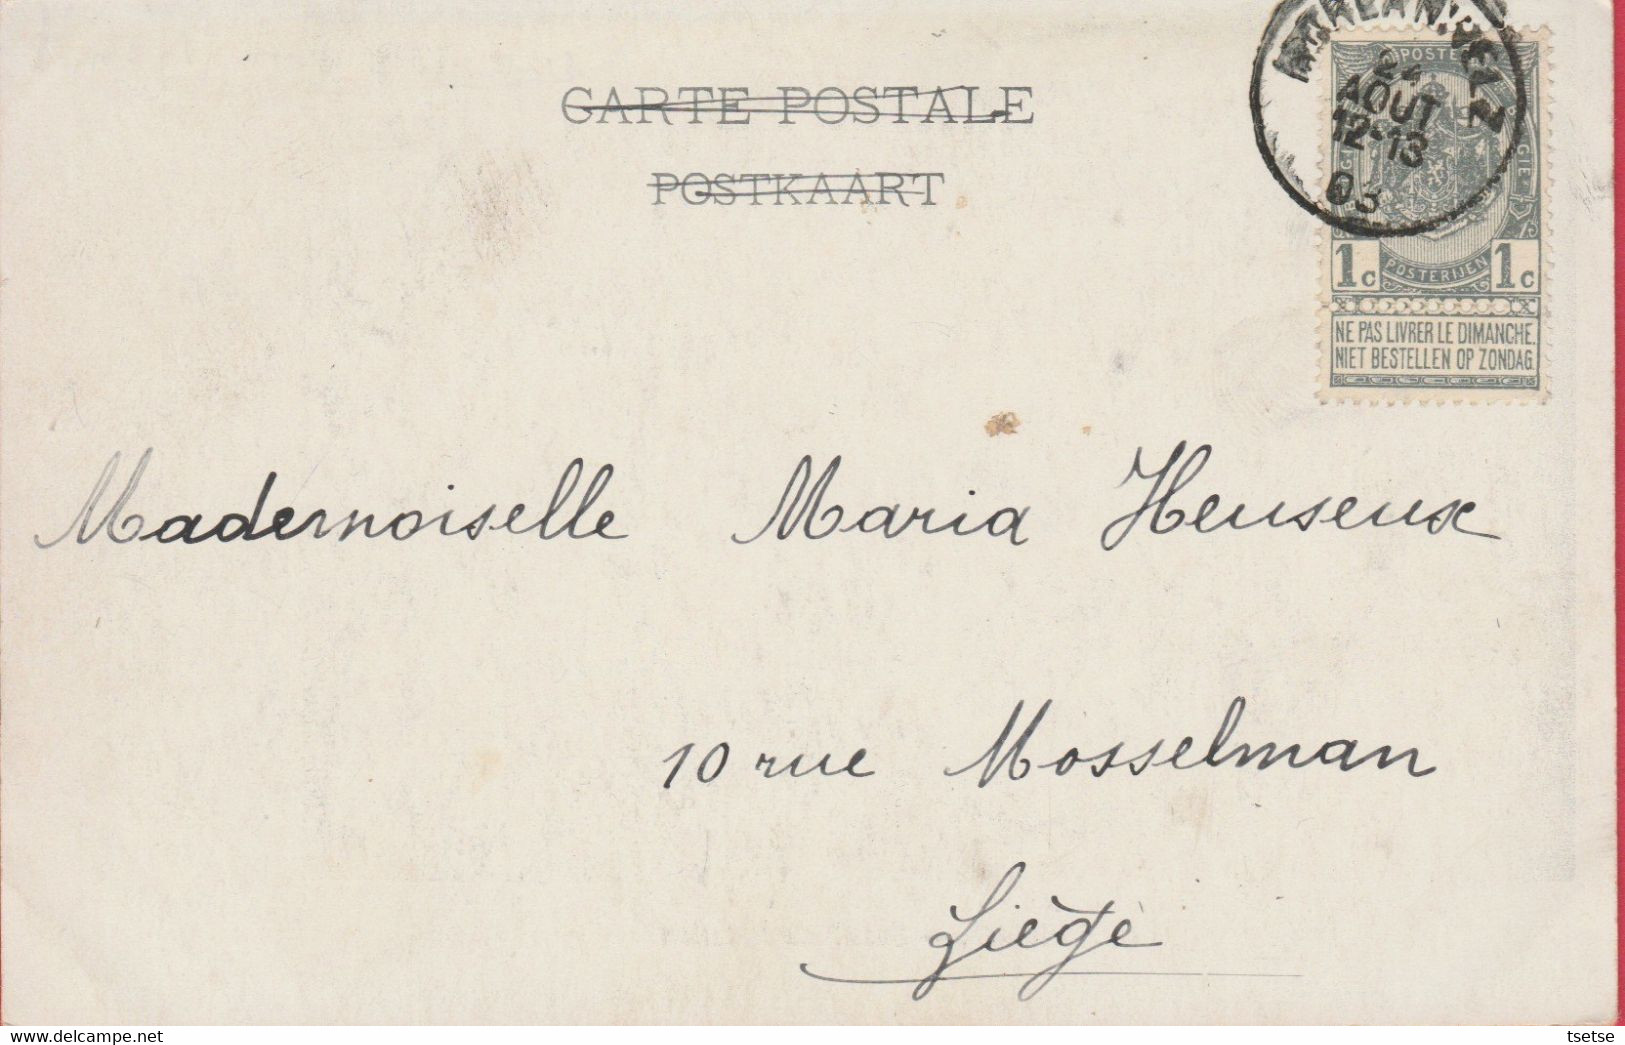 CARTE POSTALE
POSTKAART
24
AOUT
12-13
03
POSTERIJEN
1c 1c
NE PAS LIVRER LE DIMANCHE.
NIET BESTELLEN OP ZONDAG.
Mademoiselle Maria Heuseux
10 rue Mosselman
Liège
tsetse